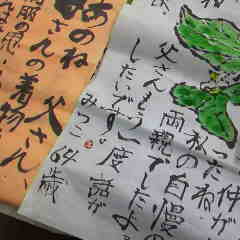 仲が
った
ね
私の自慢
両親でしたよ。
父さんもう一度
話が
したいです。
みつこ 64歳
あのね
父さん
さんの着物